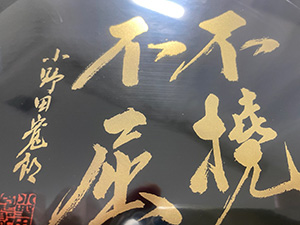 不撓
不屈
小野田寛郎